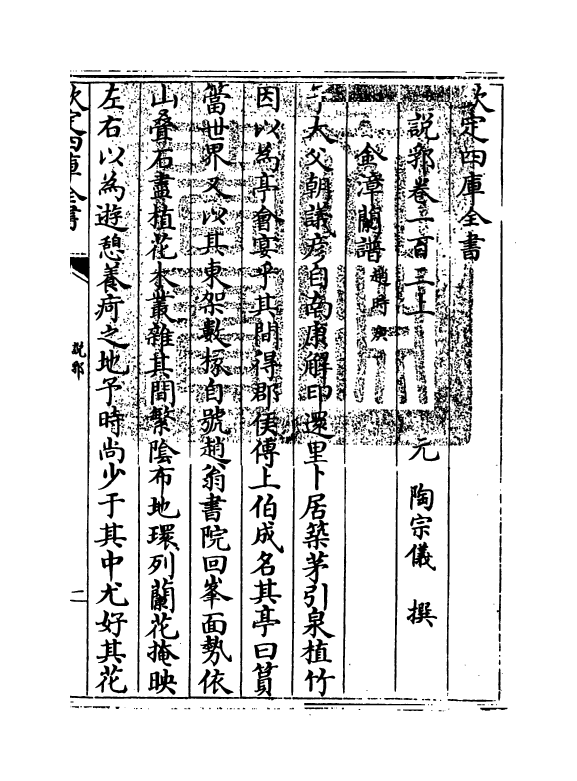 欽定四庫全書
說郛卷一百三上 元 陶宗儀 撰
金漳蘭譜 趙時庚
予大父朝議彦自南康解印還里卜居築茅引泉植竹
因以為亭㑹宴乎其間得郡侯傅上伯成名其亭曰篔
簹世界又以其東架數椽自號趙翁書院回峯面勢依
山疊石盡植花木叢雜其間繁陰布地環列蘭花掩映
左右以為遊憩養疴之地予時尚少于其中尤好其花
欽定四庫全書
說郛
二